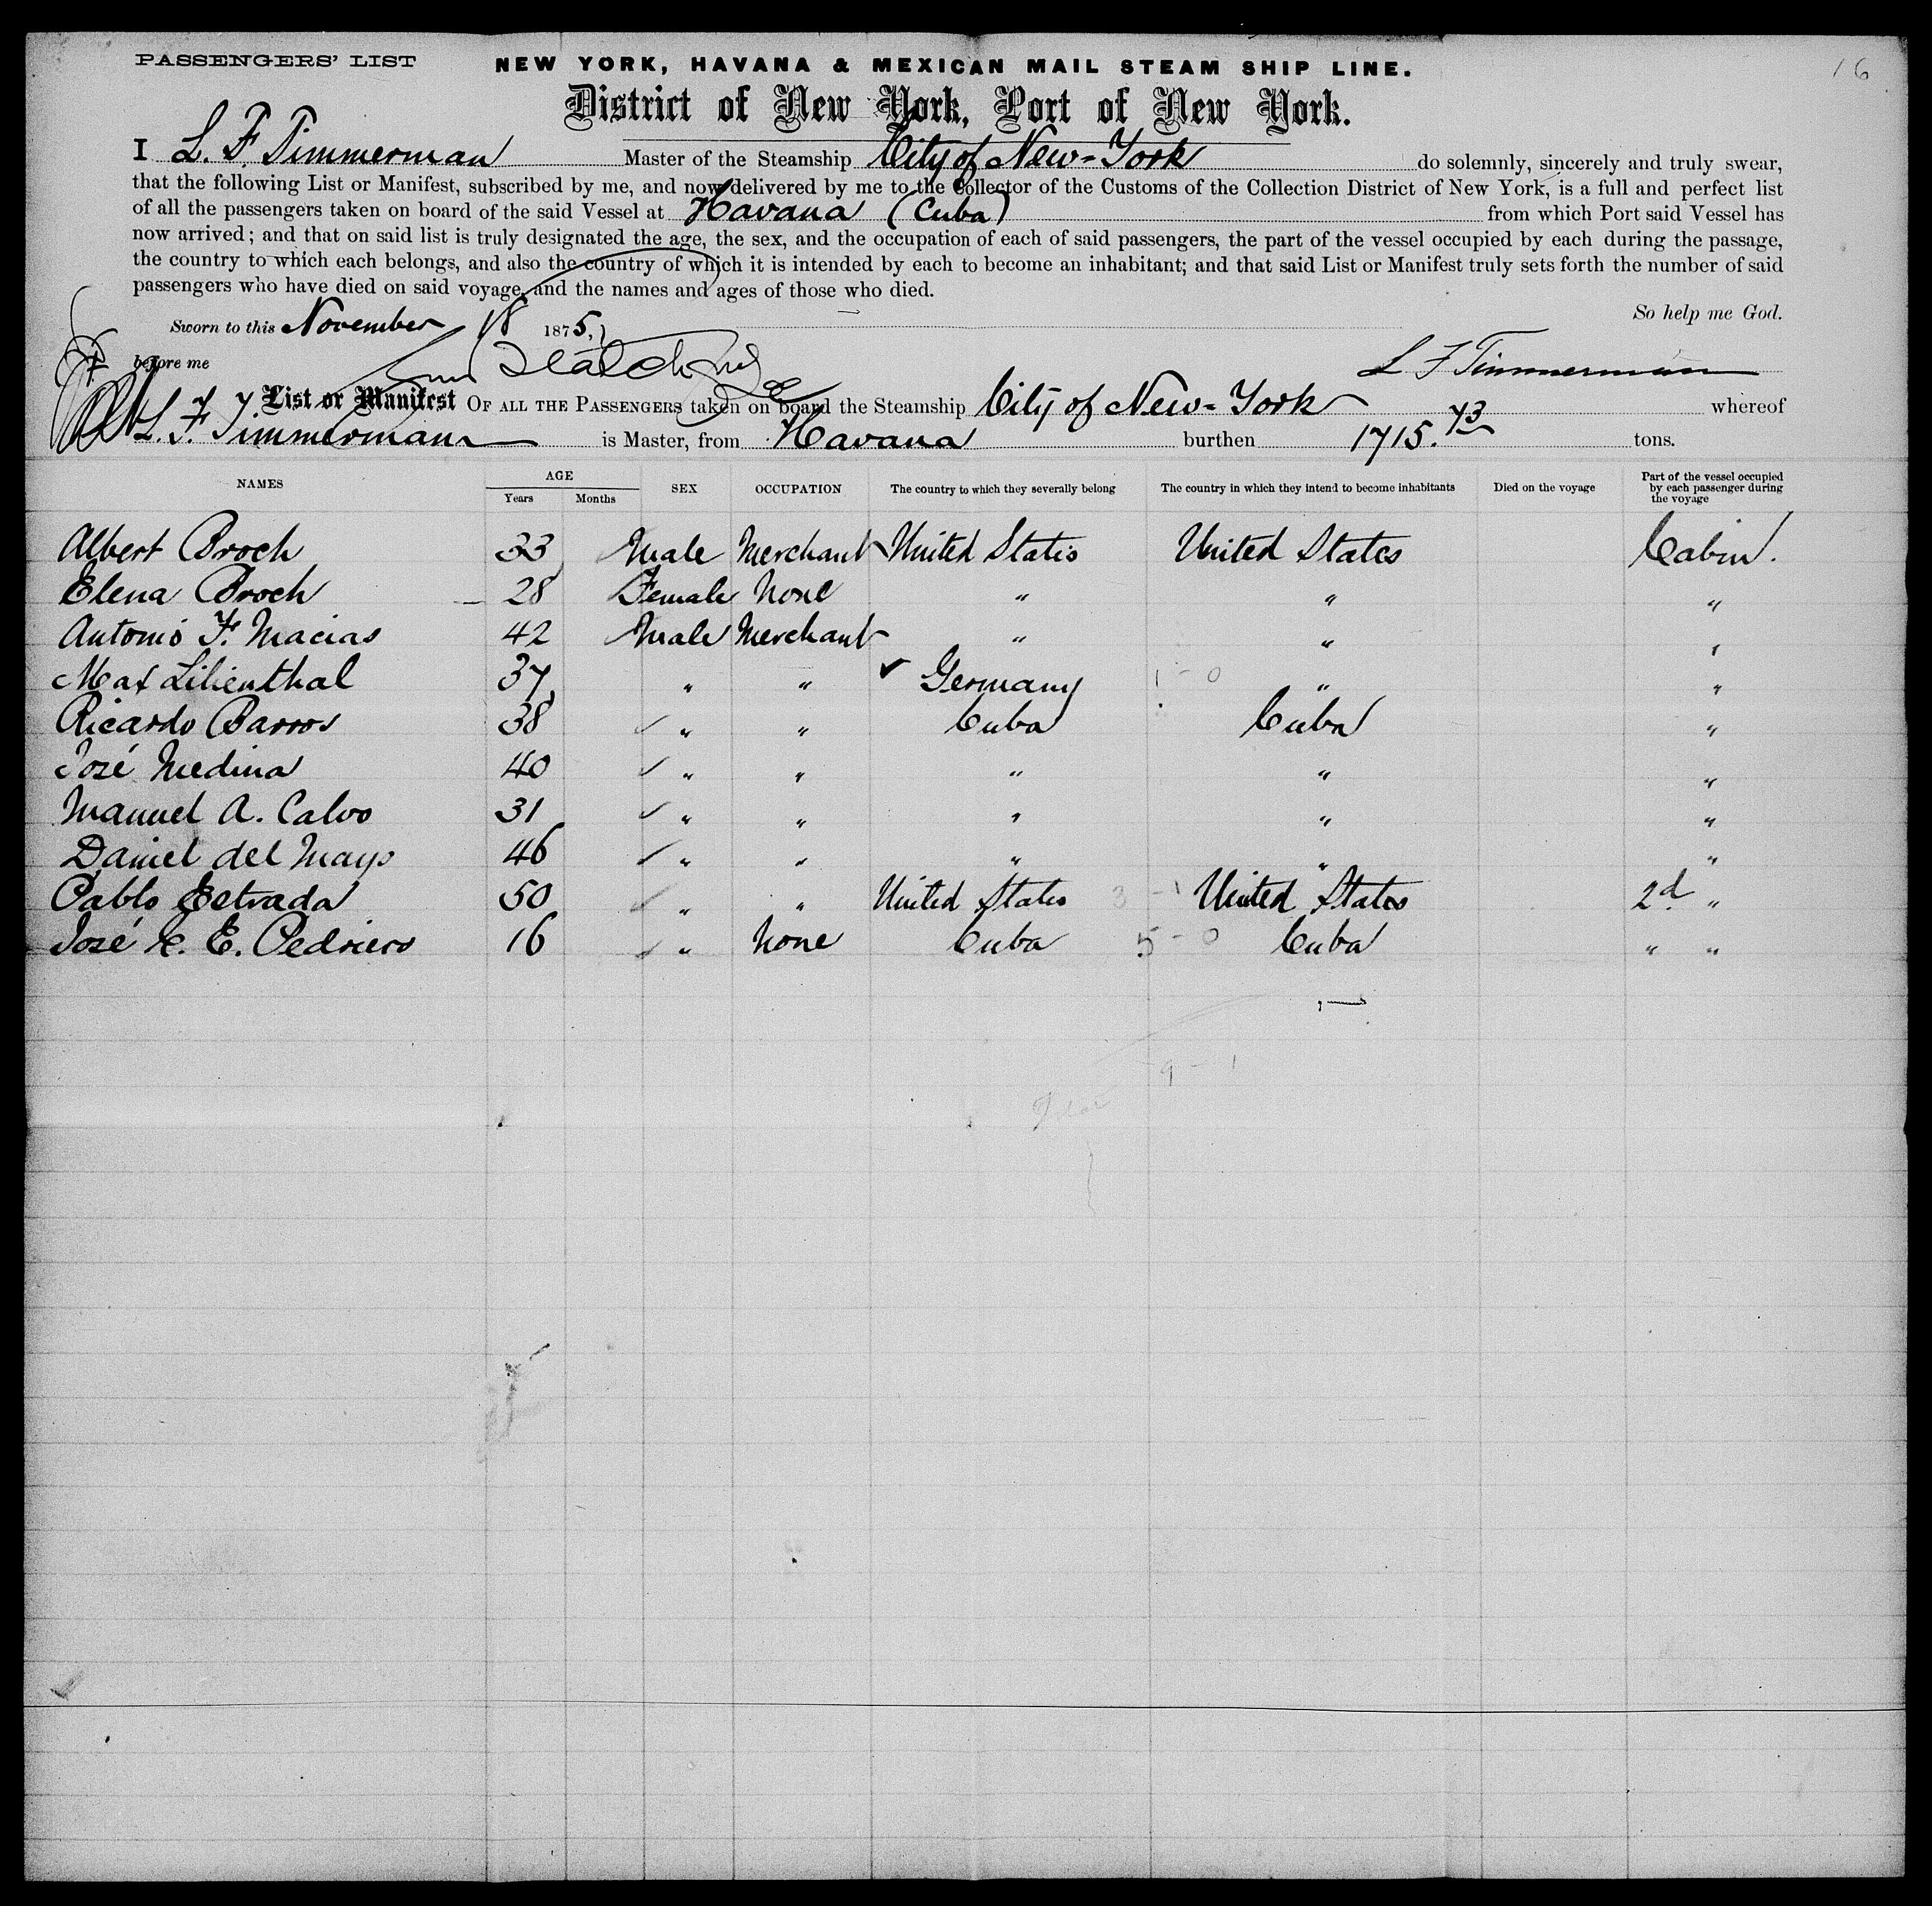 PASSENGERS' LIST NEW YORK, HAVANA & MEXICAN MAIL STEAM SHIP LINE. 16
District of New York, Port of New York.
I L. F. Timmerman Master of the Steamship City of New-York do solemnly, sincerely and truly swear,
that the following List or Manifest, subscribed by me, and now delivered by me to the Collector of the Customs of the Collection District of New York, is a full and perfect list
of all the passengers taken on board of the said Vessel at Havana (Cuba) from which Port said Vessel has
now arrived; and that on said list is truly designated the age, the sex, and the occupation of each of said passengers, the part of the vessel occupied by each during the passage,
the country to which each belongs, and also the country of which it is intended by each to become an inhabitant; and that said List or Manifest truly sets forth the number of said
passengers who have died on said voyage, and the names and ages of those who died.
So help me God.
Sworn to this November 18 1875,
before me L F Timmerman
List or Manifest OF ALL THE PASSENGERS taken on board the Steamship City of New-York whereof
L. F. Timmerman is Master, from Havana burthen 1715.43 tons.
NAMES AGE Years Months SEX OCCUPATION The country to which they severally belong The country in which they intend to become inhabitants Died on the voyage Part of the vessel occupied by each passenger during the voyage
Albert Broch 33 Male Merchant United States United States Cabin.
Elena Broch 28 Female None " " "
Antonio F. Macias 42 Male Merchant " " "
Max Lilienthal 37 " " Germany 1 - 0 " "
Ricardo Barros 38 " " Cuba Cuba "
José Medina 40 " " " " "
Manuel A. Calvo 31 " " " " "
Daniel del Mayo 46 " " " " "
Pablo Estrada 50 " " United States 3 - 1 United States 2d "
José R. E. Pedriero 16 " None Cuba 5 - 0 Cuba " "
9 - 1